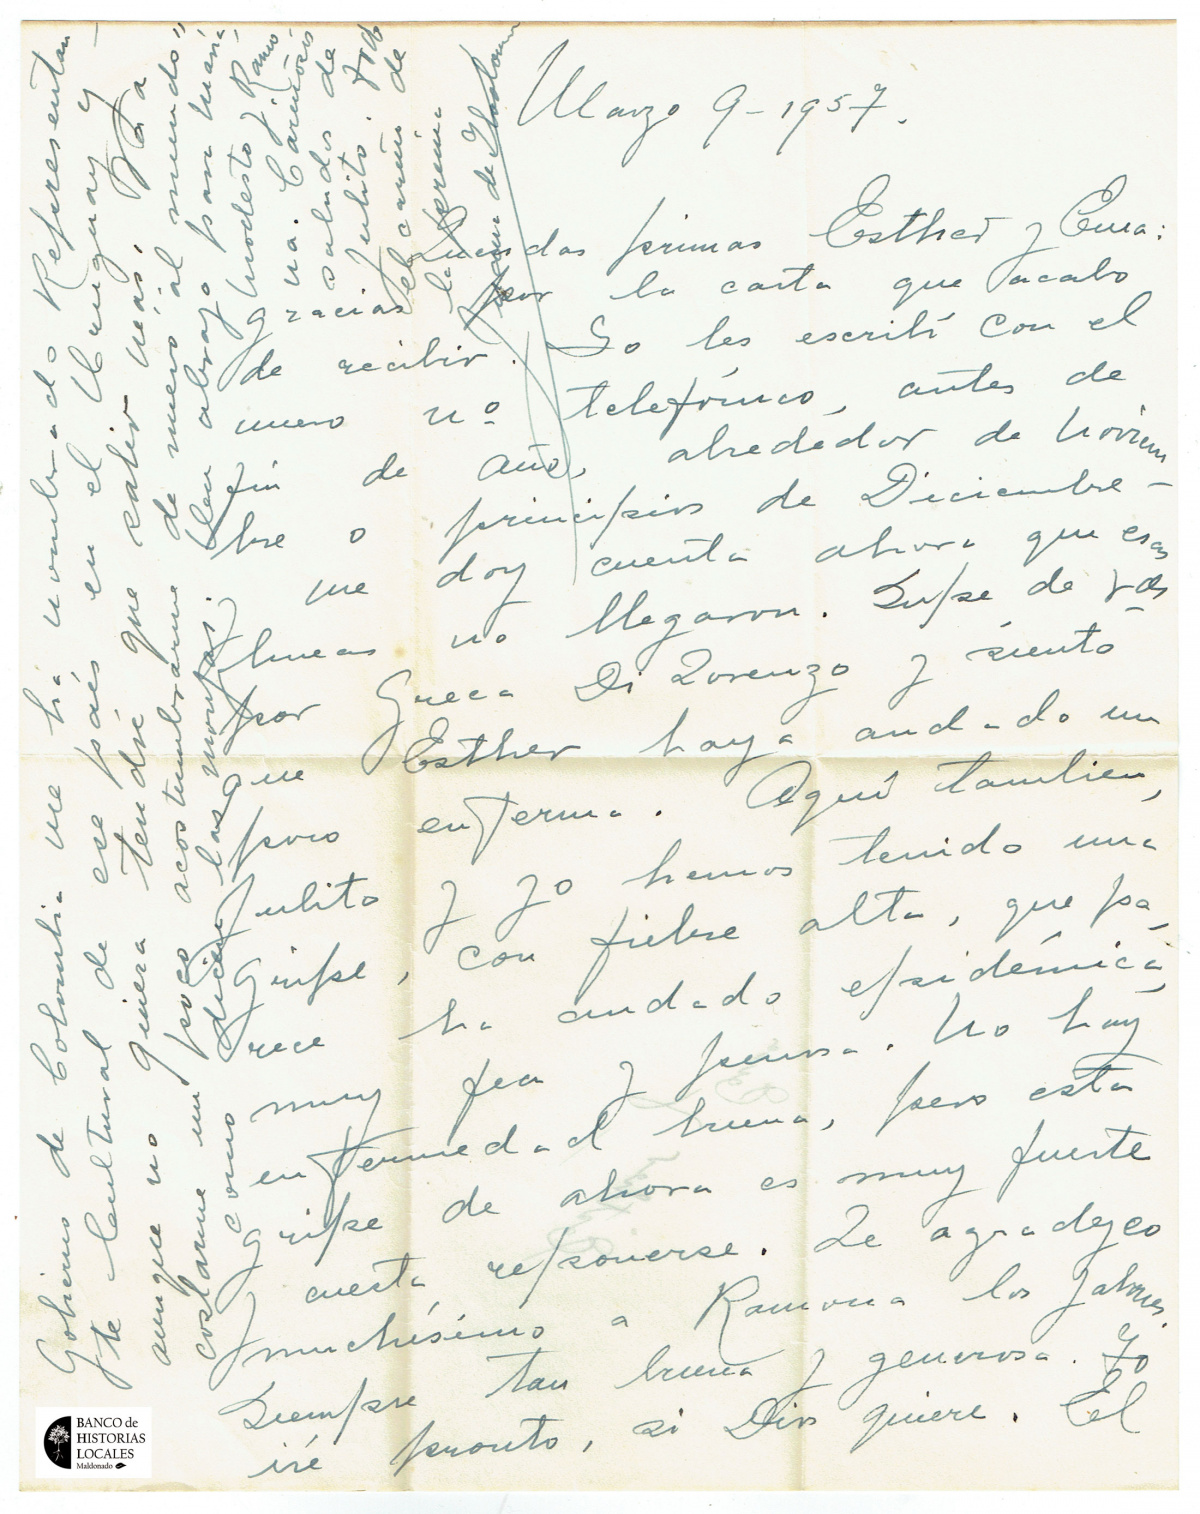 Marzo 9-1957.
Queridas primas Esther y Ema:
gracias por la carta que acabo
de recibir. Yo les escribí con el
nuevo nº telefónico, antes de
fin de año, alrededor de Noviem
bre o principios de Diciembre-
me doy cuenta ahora que esas
lineas no llegaron. Supe de vds
por Greca Di Lorenzo y siento
que Esther haya andado un
poco enferma. Aquí tambien,
Julito y yo hemos tenido una
gripe, con fiebre alta, que pa
rece ha andado epidémica,
muy fea y penosa. No hay
enfermedad buena, pero esta
gripe de ahora es muy fuerte
y cuesta reponerse. Le agradezco
muchísimo a Ramona los jabones.
Siempre tan buena y generosa. Yo
iré pronto, si Dios quiere. El
Gobierno de Colombia me ha nombrado Representan
te Cultural de ese país en el Uruguay y
aunque no quiera tendré que salir más. Va a
costarme un poco acostumbrarme de nuevo "al mundo",
como dicen las monjas. Un abrazo para María,
Modesto y Ramo
na. Cariñosos
saludos de
Julito. Todo
el cariño de
la prima
Juana de Ibarbourou
BANCO de
HISTORIAS
LOCALES
Maldonado